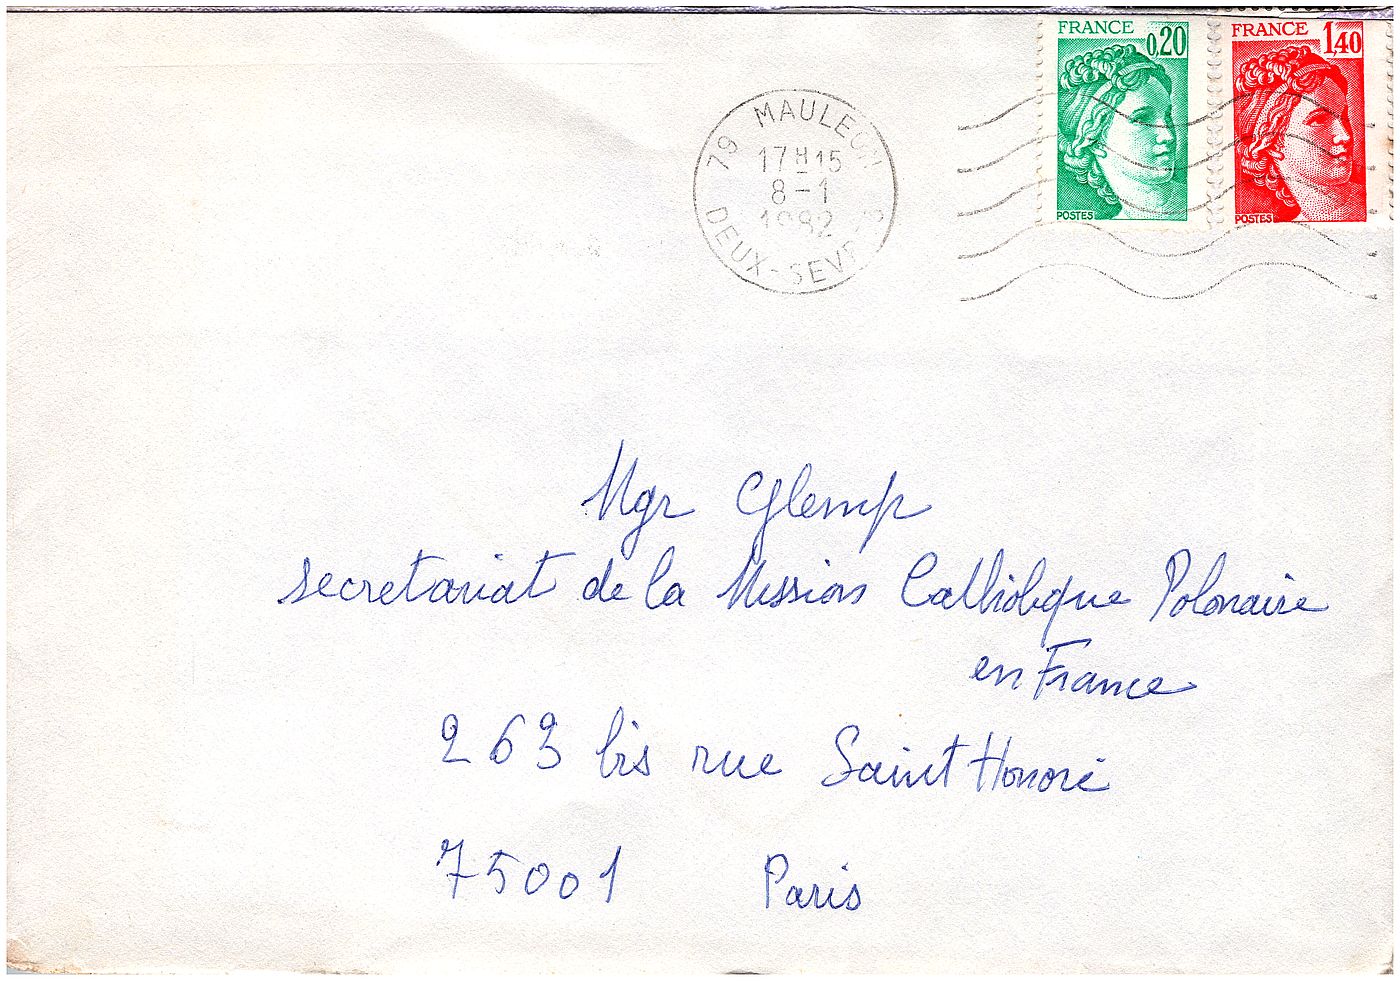 FRANCE 0,20
POSTES
FRANCE 1,40
POSTES
79 MAULEON
17H15
8-1
1982
DEUX-SEVRES
Mgr Glemp
secretariat de la Mission Catholique Polonaire
en France
263 bis rue Saint Honoré
75001 Paris